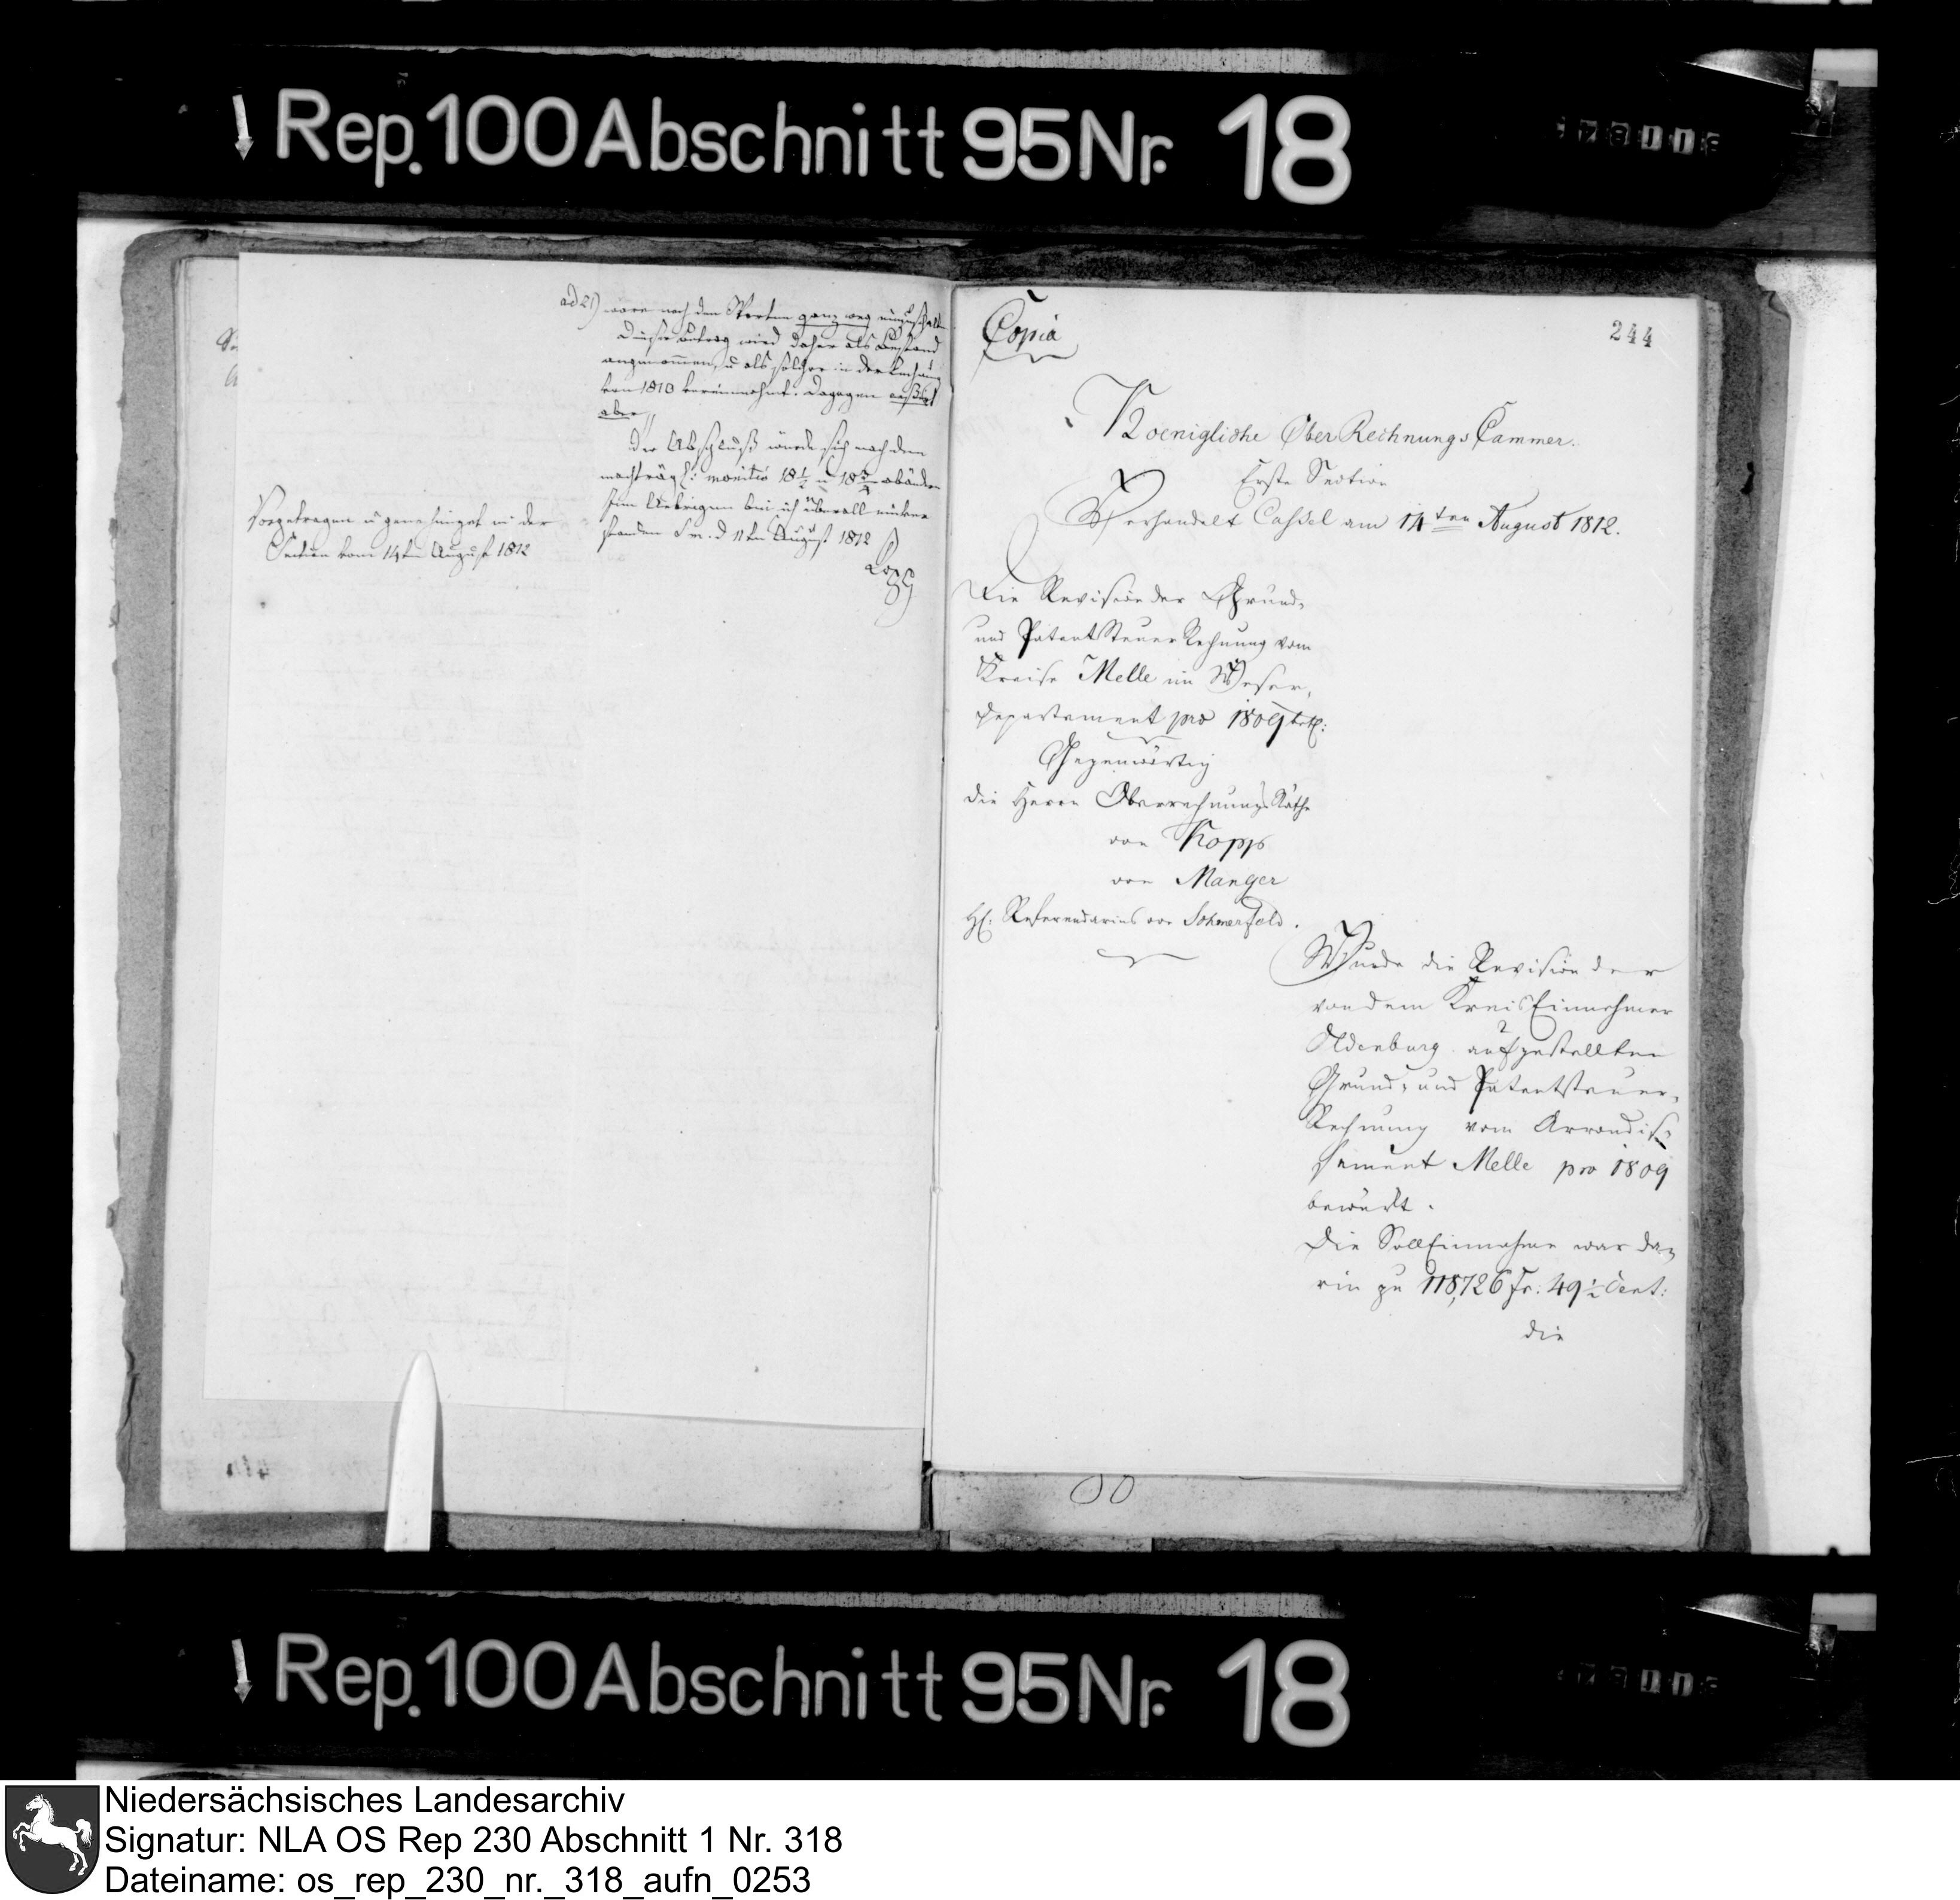 Rep. 100 Abschnitt 95 Nr. 18
ad 21) wäre nach den Worten ganz weg
Dieser Betrag wird daher als Bestand
angenommen, u als solcher in der Rechnung
von 1810 vereinnahmt. Dagegen
aber
Der Abschluß würde sich nach dem
nachträgl: monitis 18 1/2 u 18 3/4 abändern
Im Uebrigen bin ich überall einver
standen d 11ten August 1812
Kopp
Vorgetragen u genehmigt in der
Section vom 14ten August 1812
Copia
244
Koenigliche Ober Rechnungs Cammer.
Erste Section
Verhandelt Cassel am 14ten August 1812.
Die Revision der Grund-
und Patent Steuer Rechnung vom
Kreise Melle im Weser-
departement pro 1809 betr:
Gegenwärtig
die Herrn Oberrechnungs Räthe
von Kopp
von Manger
H. Referendarius von Schmerfeld.
Wurde die Revision der
von dem Kreis Einnehmer
Oldenburg aufgestellten
Grund- und Patentsteuer-
Rechnung vom Arrondis-
sement Melle pro 1809
bewirkt.
Die Soll Einnahme war da-
rin zu 118,726 Fr: 49 1/2 Cent:
die
Rep. 100 Abschnitt 95 Nr. 18
Niedersächsisches Landesarchiv
Signatur: NLA OS Rep 230 Abschnitt 1 Nr. 318
Dateiname: os_rep_230_nr._318_aufn_0253